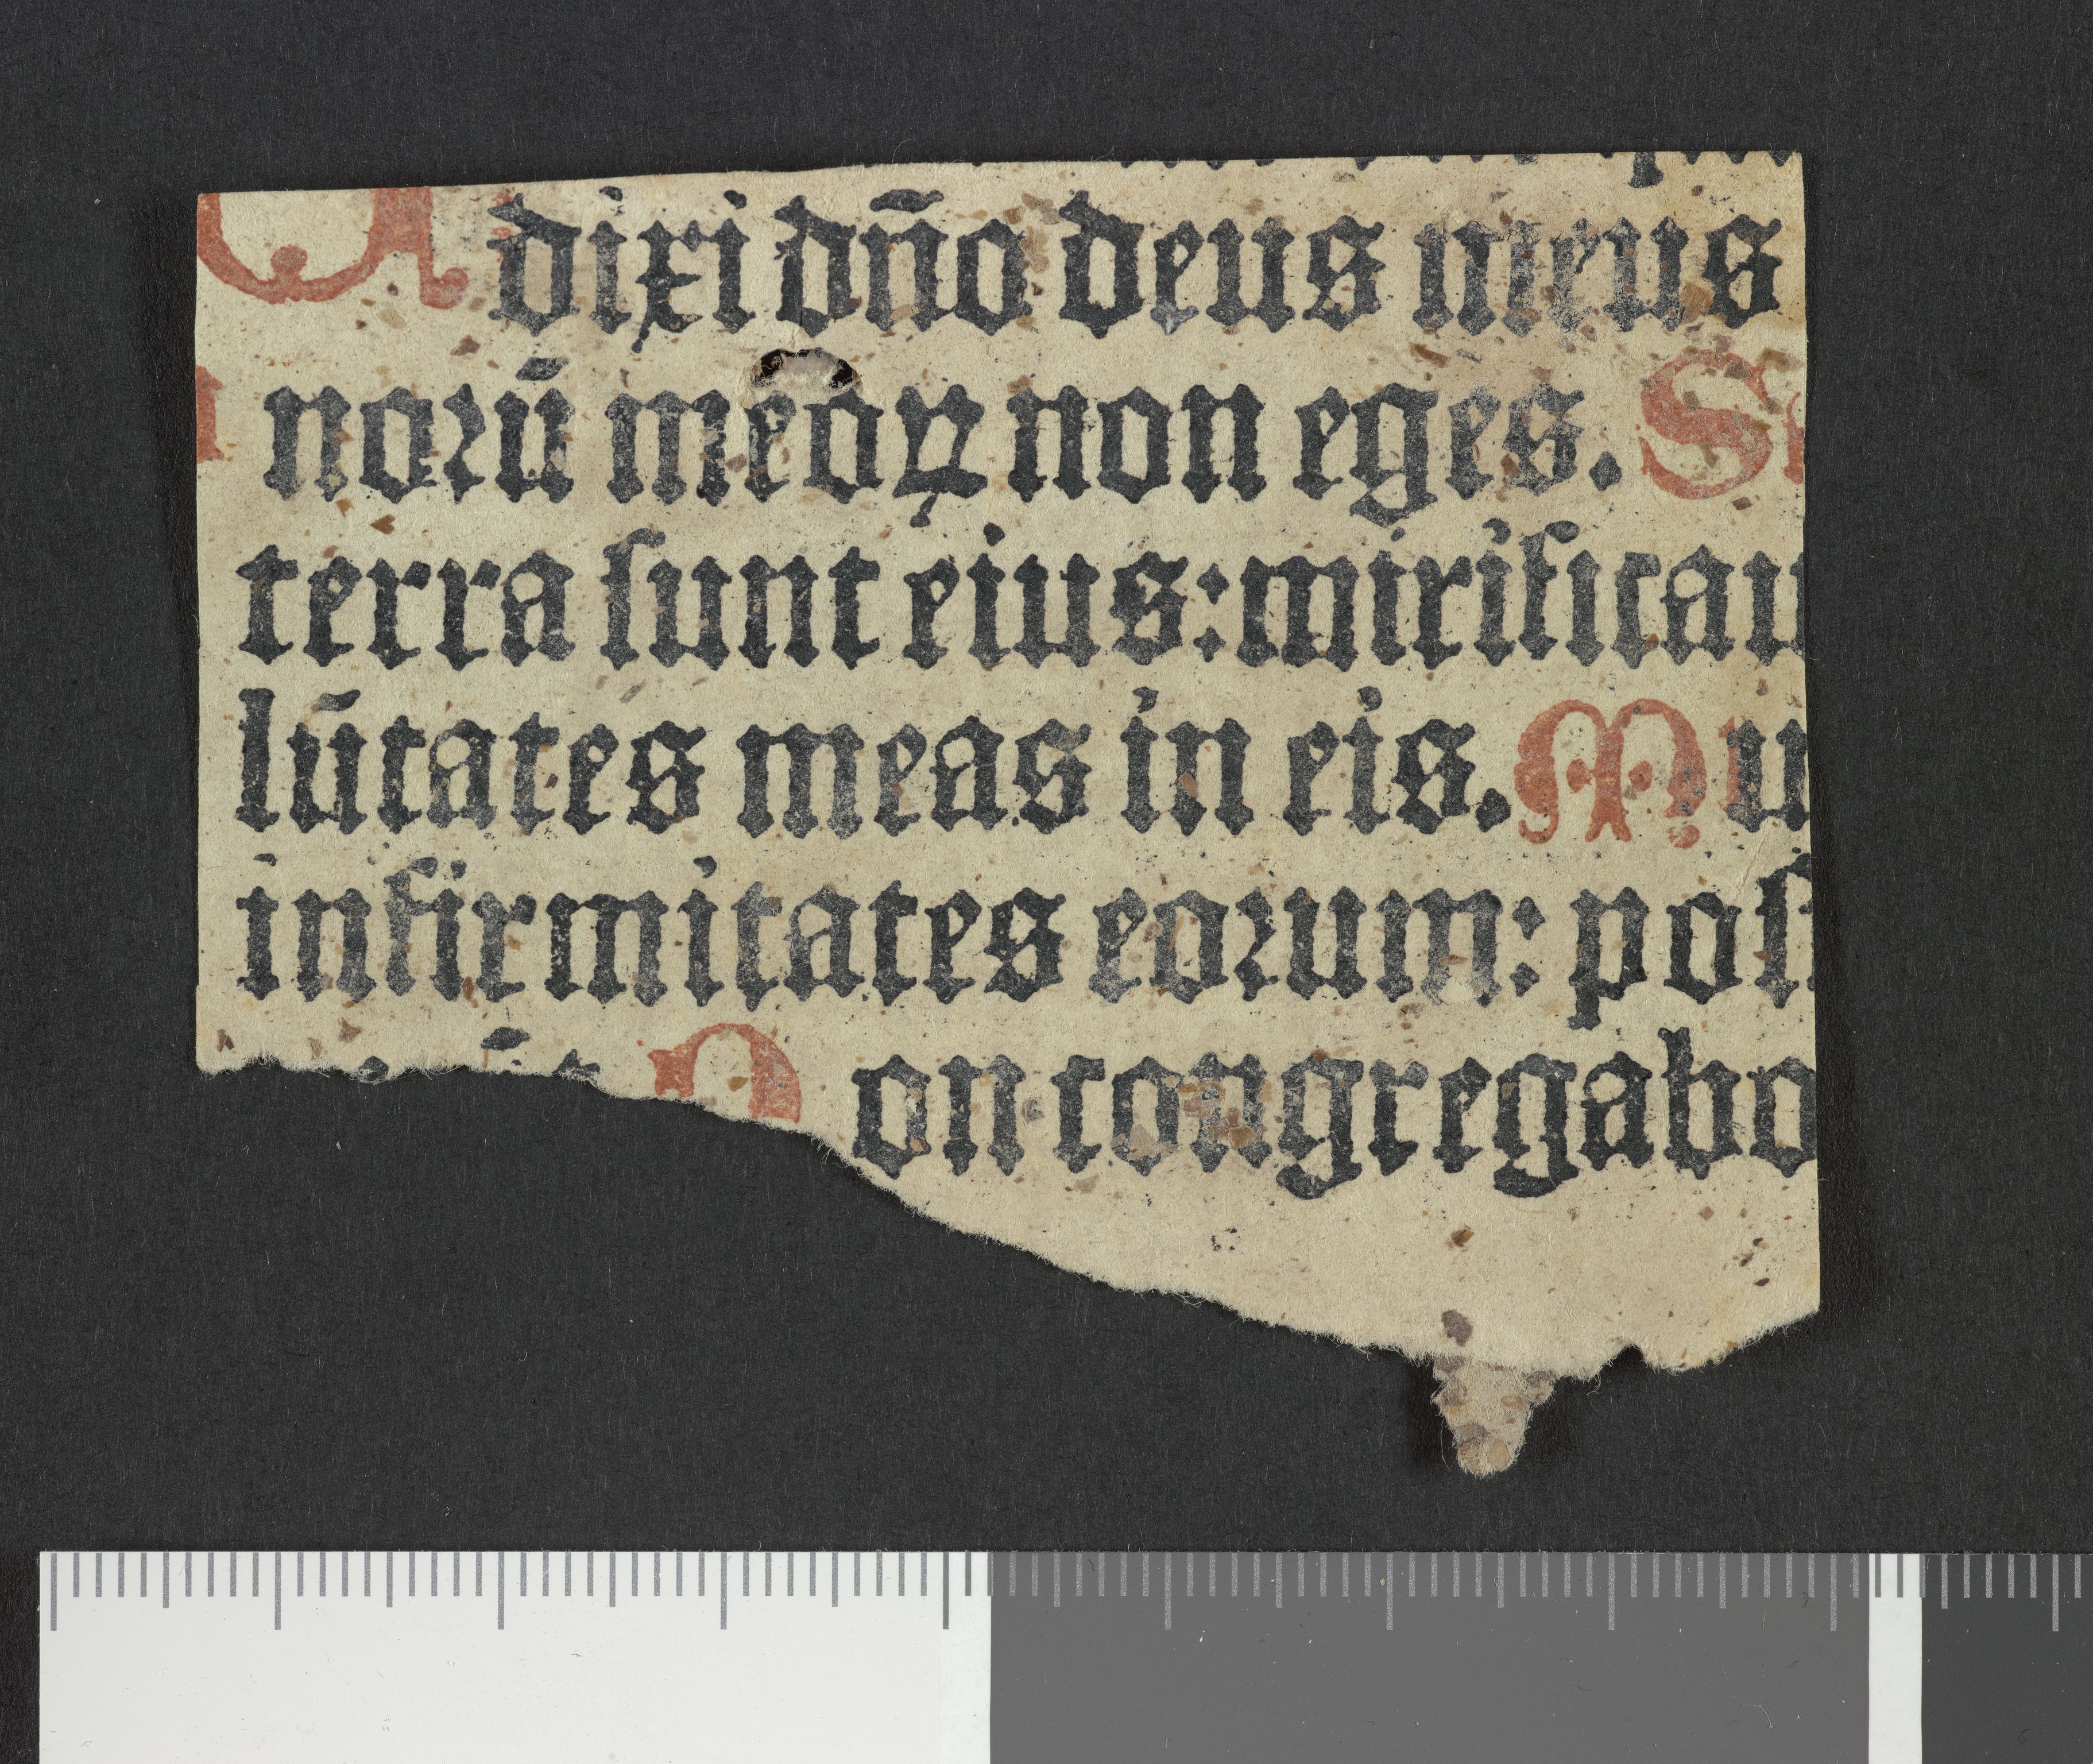 dixi dn̄o deus meus
norū meoꝝ non eges. S
terra ſunt eius: mirificau
lūtates meas in eis. Mu
infirmitates eorum: poſt
on congregabo